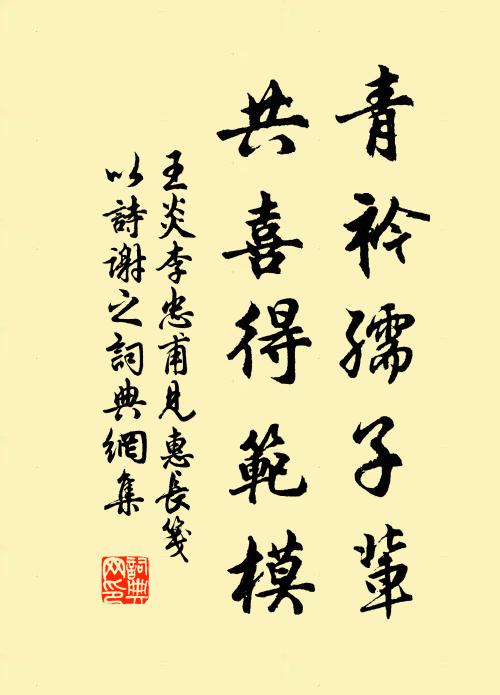 青衿孺子輩
共喜得範模
王炎李忠甫見惠長箋
以詩謝之詞典網集
詞典
网印